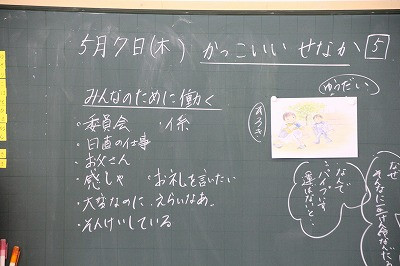 5月7日(木) かっこいい せなか 5
みんなのために働く
・委員会 ・係
・日直の仕事
・お父さん
・感しゃ ・お礼を言いたい
・大変なのに、えらいなあ。
・そんけいしている
ゆうだい
あるき
なんで
運ばないと・
なぜ